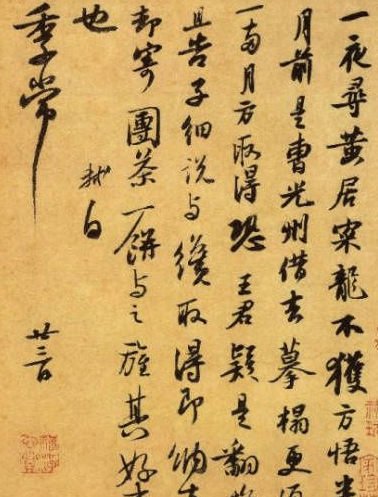 一夜尋黃居寀龍不獲方悟半
月前是曹光州借去摹榻更須
一兩月方取得恐王君疑是翻悔
且告子細說与纔取得即納去
却寄團茶一餅与之旌其好事
也
軾白
季常
廿三日